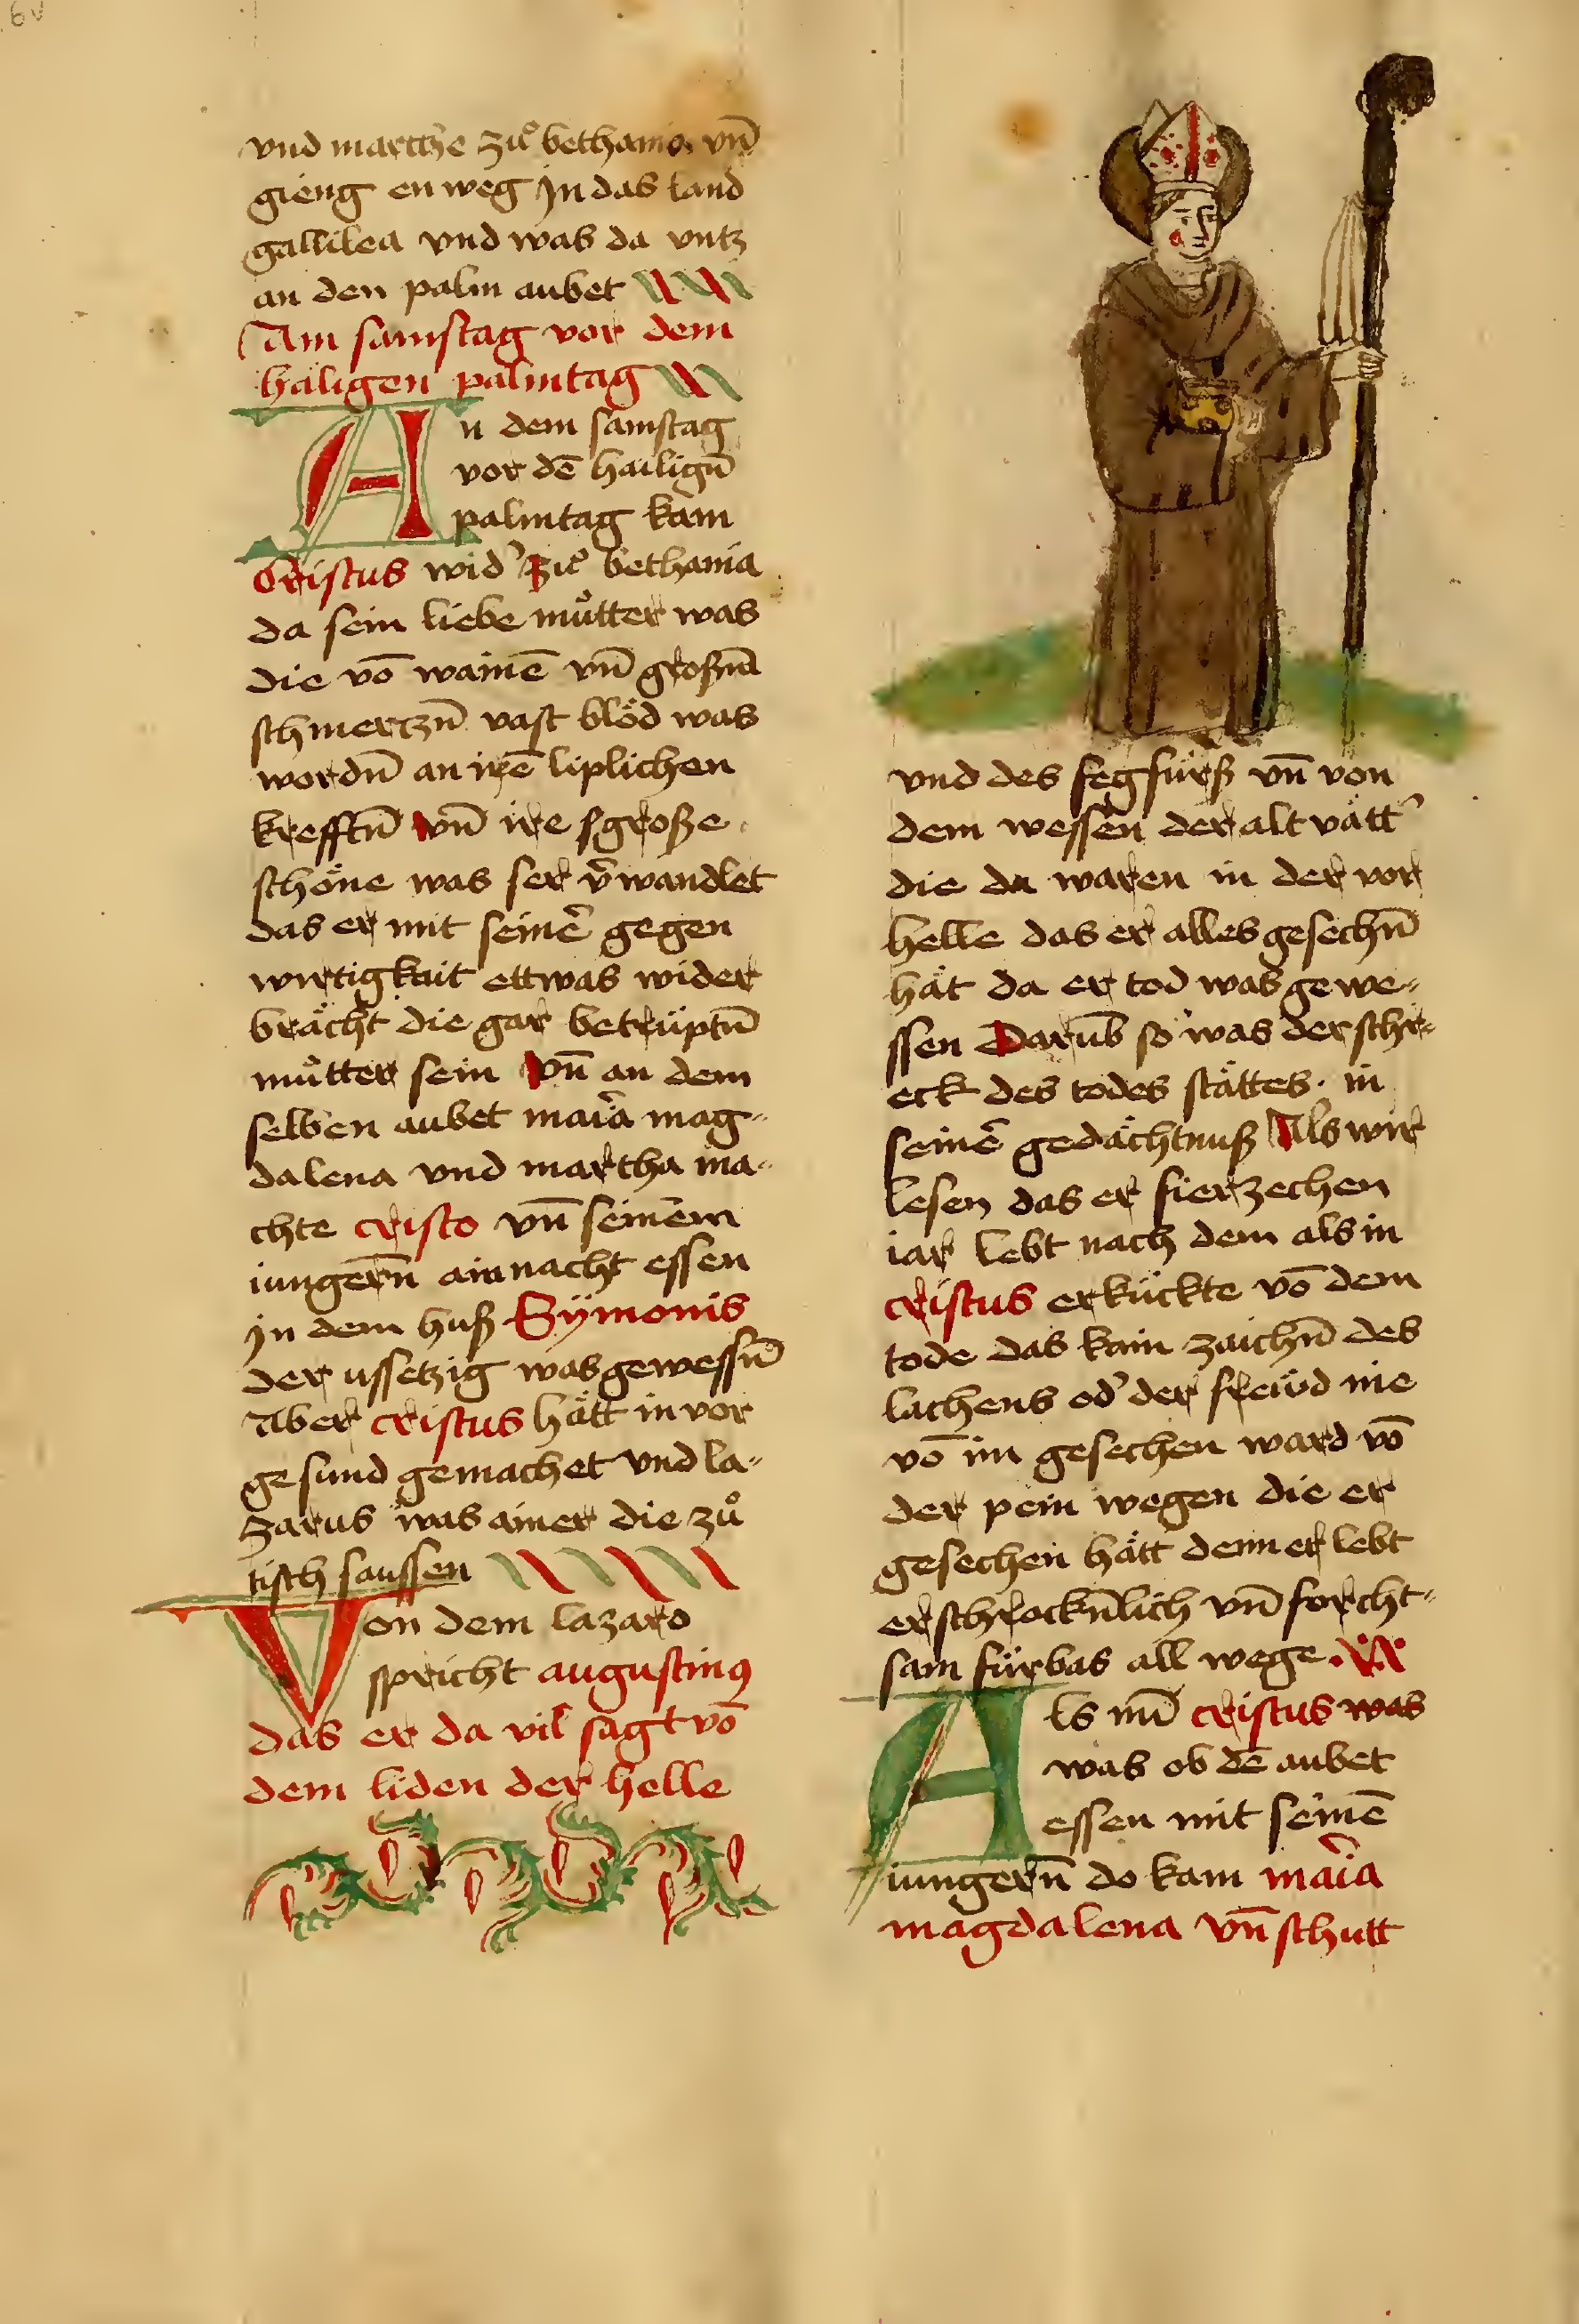 6v
vnd martthe zuͦ bethania vn̄
gieng en weg Jn das land
gallilea vnd was da vntz
an den palm aubet
Am samstag vor dem
hāligen palmtag
An dem samstag
vor dē hailign̄
palmtag kam
Cristus wid' zuͦ bethania
da sein liebe muͦtter was
die vō wainē vn̄ großm̄
schmertzn̄ vast blöd was
wordn̄ an irē liplichen
krefftn̄ vn̄ ire sgroße
schöne was ser v̄wandlet
das er mit seinē gegen
wirtigkait ettwas wider
brächt die gar betrüptn̄
muͦtter sein vn̄ an dem
selben aubet maīa mag-
dalena vnd martha ma-
chte cristo vn̄ seinem
iungern̄ ain nacht essen
Jn dem huß Sÿmonis
der ussetzig was gewessn̄
Aber cristus hätt in vor
gesund gemachet vnd la-
zarus was ainer die zuͦ
tisch saussen
Von dem lazaro
spricht augustinꝯ
das er da vil sagt vō
dem liden der helle
vnd des fegfürß vn̄ von
dem wessen der alt vätt'
die da waren in der vor
helle das er alles gesechn̄
hät da er tod was gewe-
ssen Darūb so was der schr-
eck des todes stättes in
seinē gedächtnuß Als wir
lesen das er fierzechen
iar lebt nach dem als in
cristus erkückte vō dem
tode das kain zaichn̄ des
lachens od' der freüd nie
vō im gesechen ward vō
der pein wegen die er
gesechen hätt denn er lebt
erschrockn̄lich vn̄ forcht-
sam fürbas all wege
Als nū cristus was
was ob dē aubet
essen mit seinē
iungern̄ do kam maīa
magdalena vn̄ schutt